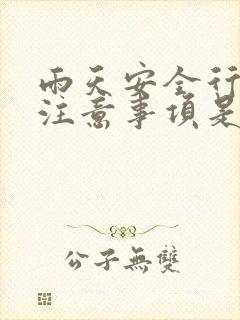 雨天安全行
注意事項是
公子無雙